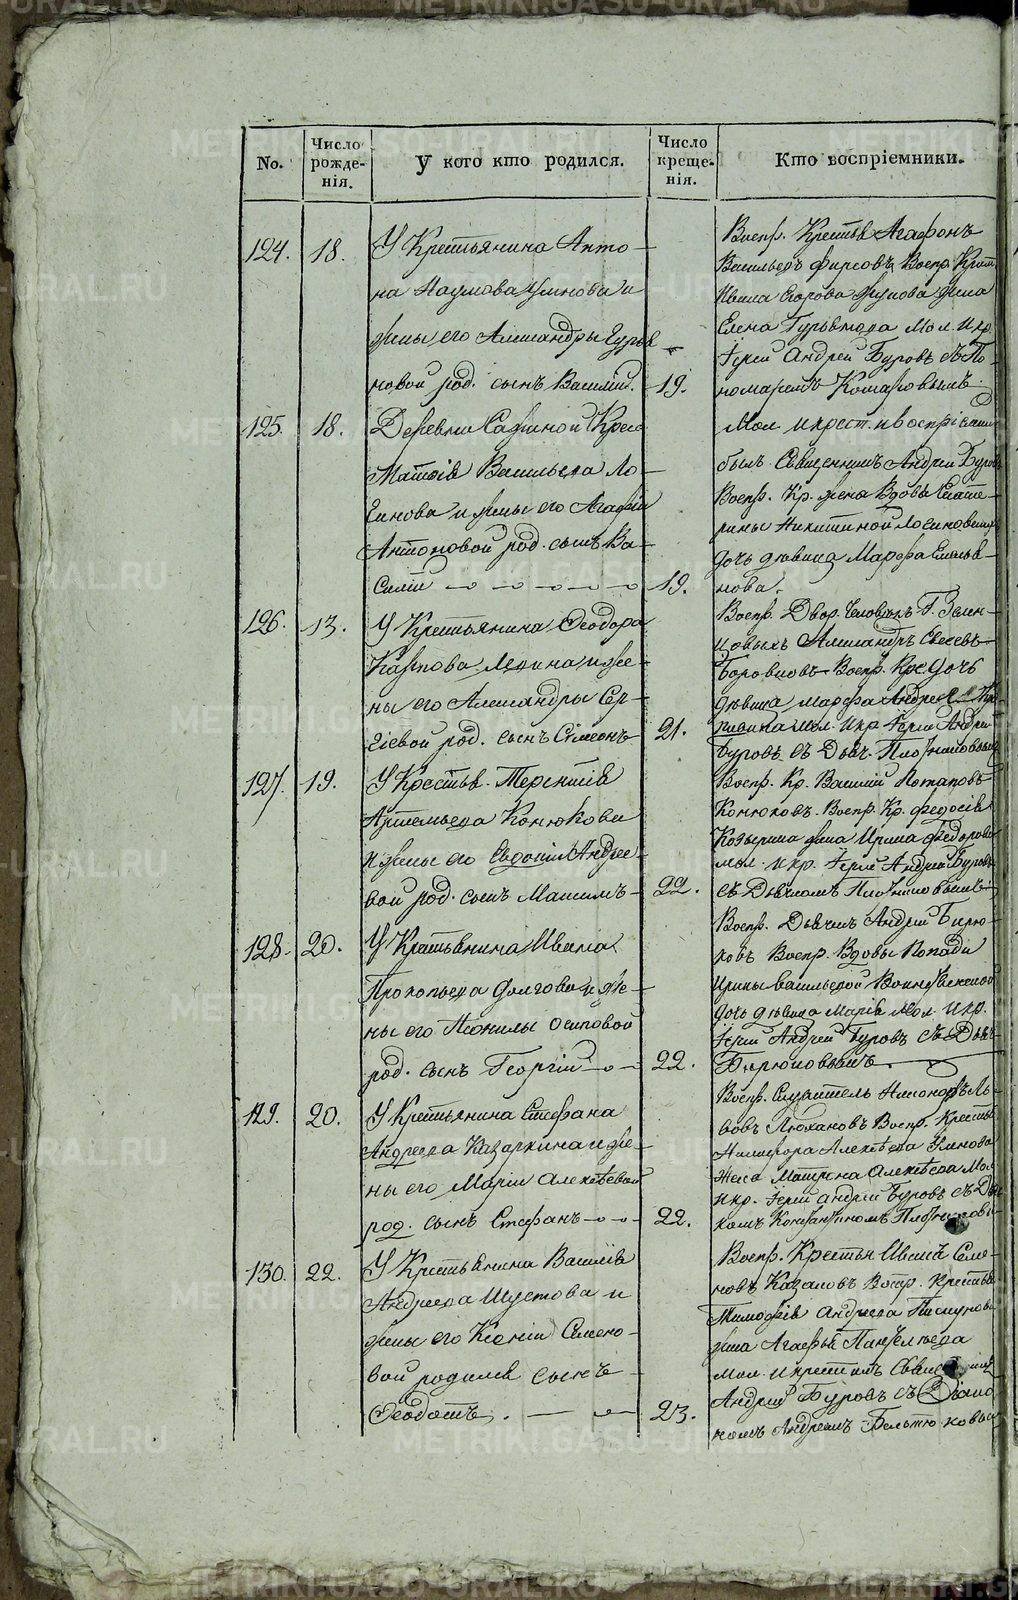 No.
Число рожде-нія.
У кого кто родился.
Число креще-нія.
Кто воспріемники.
124.
18.
У Крестьянина Анто-
на Наумова Умнова и
жены его Александры Гурья-
новой род. сынъ Василій.
19.
Воспр. Крестья Агафонъ
Васильевъ Фирсовъ Воспр. Крест
Ивана Егорова жена
Елена Гурьянова Мол. и кр.
Іерей Андрей Буровъ съ По-
номаремъ Комаровымъ.
125.
18.
Деревни Крес
Матвія Васильева Ло-
гинова и жены его Агафіи
Антоновой род. сынъ Ва-
силій
19.
Мол. и крест. и воспріемни
былъ Священникъ Андрей Буровъ
Воспр. Кр. жена Вдовы Екате-
рины Никитиной Логиновой
дочь дѣвица Марфа Емелья-
нова.
126.
13.
У Крестьянина Ѳеодора
Карпова и же-
ны его Александры Сер-
гіевой род. сынъ Сѵмеонъ
21.
Воспр. Двор. Человѣкъ Г.
Александръ
Боровковъ Воспр. Кре дочь
дѣвица Марфа Андреев
мол. и кр. Іерей Андрей
Буровъ съ Дьяч. Плотниковымъ
127.
19.
У Крестья. Терентія
Артемьева Конюкова
и жены его Евдокіи Андрее-
вой род. сынъ Максимъ
22.
Воспр. Кр. Василій Потаповъ
Конюковъ. Воспр. Кр. Федосія
жена Ирина Федорова
мол. и кр. Іерей Андрей Буровъ
съ Дьячкомъ Плотниковымъ
128.
20.
У Крестьянина Ивана
Прокопьева Долгова и же-
ны его Неонилы Осиповой
род. сынъ Георгій
22.
Воспр. Дьячекъ Андрей Бирю-
ковъ Воспр. Вдовы Попади
Ирины Васильевой
дочь дѣвица Марія Мол. и кр.
Іерей Андрей Буровъ съ Дьяч
Бирюковымъ
129.
20.
У Крестьянина Стефана
Андреева Казаркина и же-
ны его Маріи Алексѣевой
род. сынъ Стефанъ
22.
Воспр. Служитель Никоноръ Ль-
вовъ Воспр. Крестья
Никифора Алексѣева Умнова
жена Матрена Алексѣева Мол
и кр. Іерей Андрей Буровъ съ Дьяч
комъ Константиномъ Плотникови
130.
22.
У Крестьянина Василія
Андреева Шустова и
жены его Ксеніи Семено-
вой родился сынъ
Ѳеодотъ.
23.
Воспр. Крестьн Иванъ Семе-
новъ Казаковъ Воспр. Крестья
Тимофія Андреева Пискунова
жена Агафья Пантелеева
мол. и крестилъ Священникъ
Андрей Буровъ съ Діако
номъ Андреемъ
METRIKI.GASU-URAL.RU